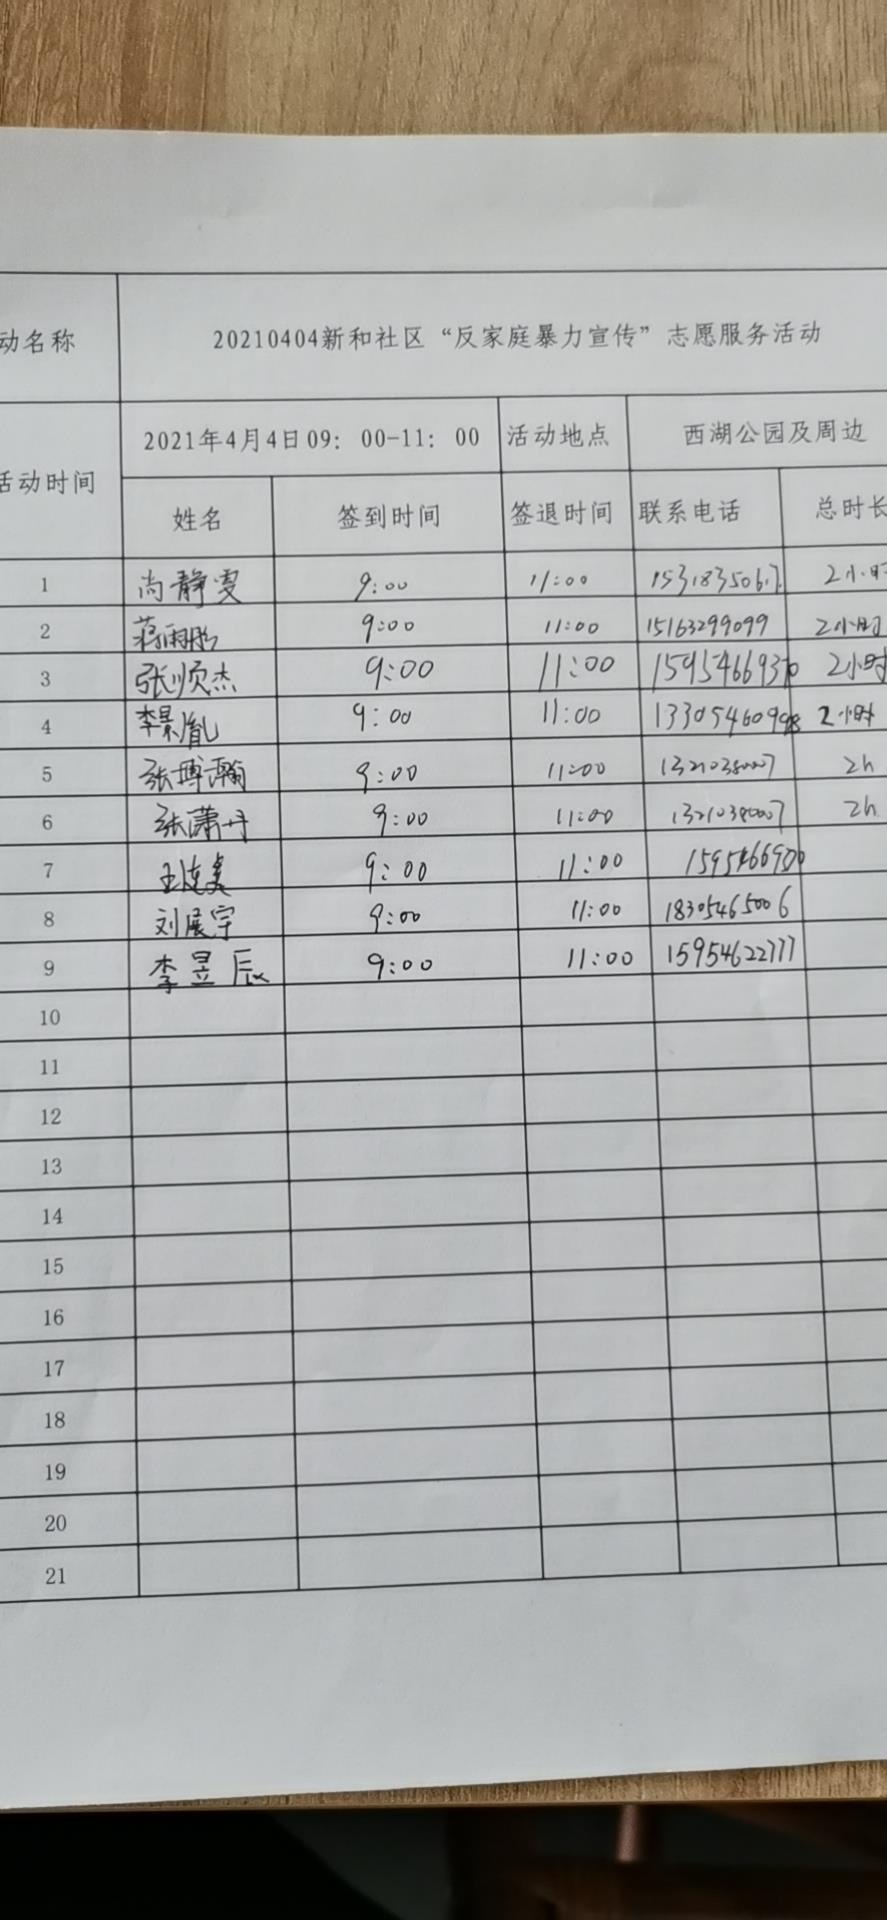 动名称 20210404新和社区“反家庭暴力宣传”志愿服务活动
活动时间 2021年4月4日09：00-11：00 活动地点 西湖公园及周边
姓名 签到时间 签退时间 联系电话 总时长
1 尚静雯 9:00 11:00 15318350617 2小时
2 蒋雨彤 9:00 11:00 15163299099 2小时
3 张顺杰 9:00 11:00 2小时
4 李景胤 9:00 11:00 2小时
5 张博瀚 9:00 11:00 13210380007 2h
6 张潇丹 9:00 11:00 13210380007 2h
7 9:00 11:00
8 刘展宇 9:00 11:00 18305465006
9 李昱辰 9:00 11:00 15954622777
10
11
12
13
14
15
16
17
18
19
20
21